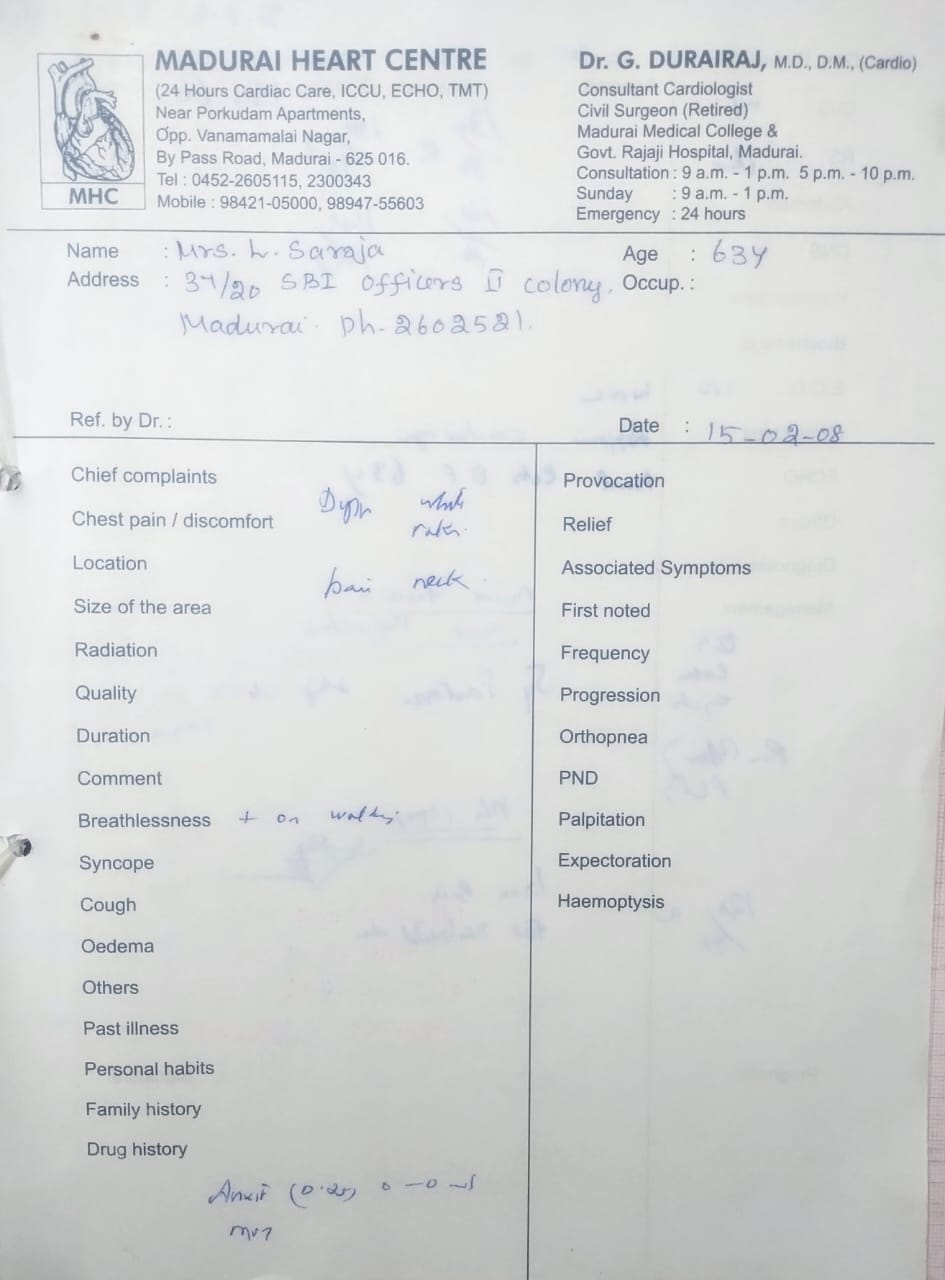 MADURAI HEART CENTRE
(24 Hours Cardiac Care, ICCU, ECHO, TMT)
Near Porkudam Apartments,
Opp. Vanamamalai Nagar,
By Pass Road, Madurai - 625 016.
Tel : 0452-2605115, 2300343
Mobile : 98421-05000, 98947-55603
MHC
Dr. G. DURAIRAJ, M.D., D.M., (Cardio)
Consultant Cardiologist
Civil Surgeon (Retired)
Madurai Medical College &
Govt. Rajaji Hospital, Madurai.
Consultation : 9 a.m. - 1 p.m. 5 p.m. - 10 p.m.
Sunday : 9 a.m. - 1 p.m.
Emergency : 24 hours
Name : Mrs. L. Saraja
Age : 63y
Address : 37/20 SBI Officers II colony,
Occup. :
Madurai. Ph-2602521.
Ref. by Dr. :
Date : 15-02-08
Chief complaints
Chest pain / discomfort
Location
pain neck.
Size of the area
Radiation
Quality
Duration
Comment
Breathlessness + on walking
Syncope
Cough
Oedema
Others
Past illness
Personal habits
Family history
Drug history
(0.25) 0-0-1
Provocation
Relief
Associated Symptoms
First noted
Frequency
Progression
Orthopnea
PND
Palpitation
Expectoration
Haemoptysis